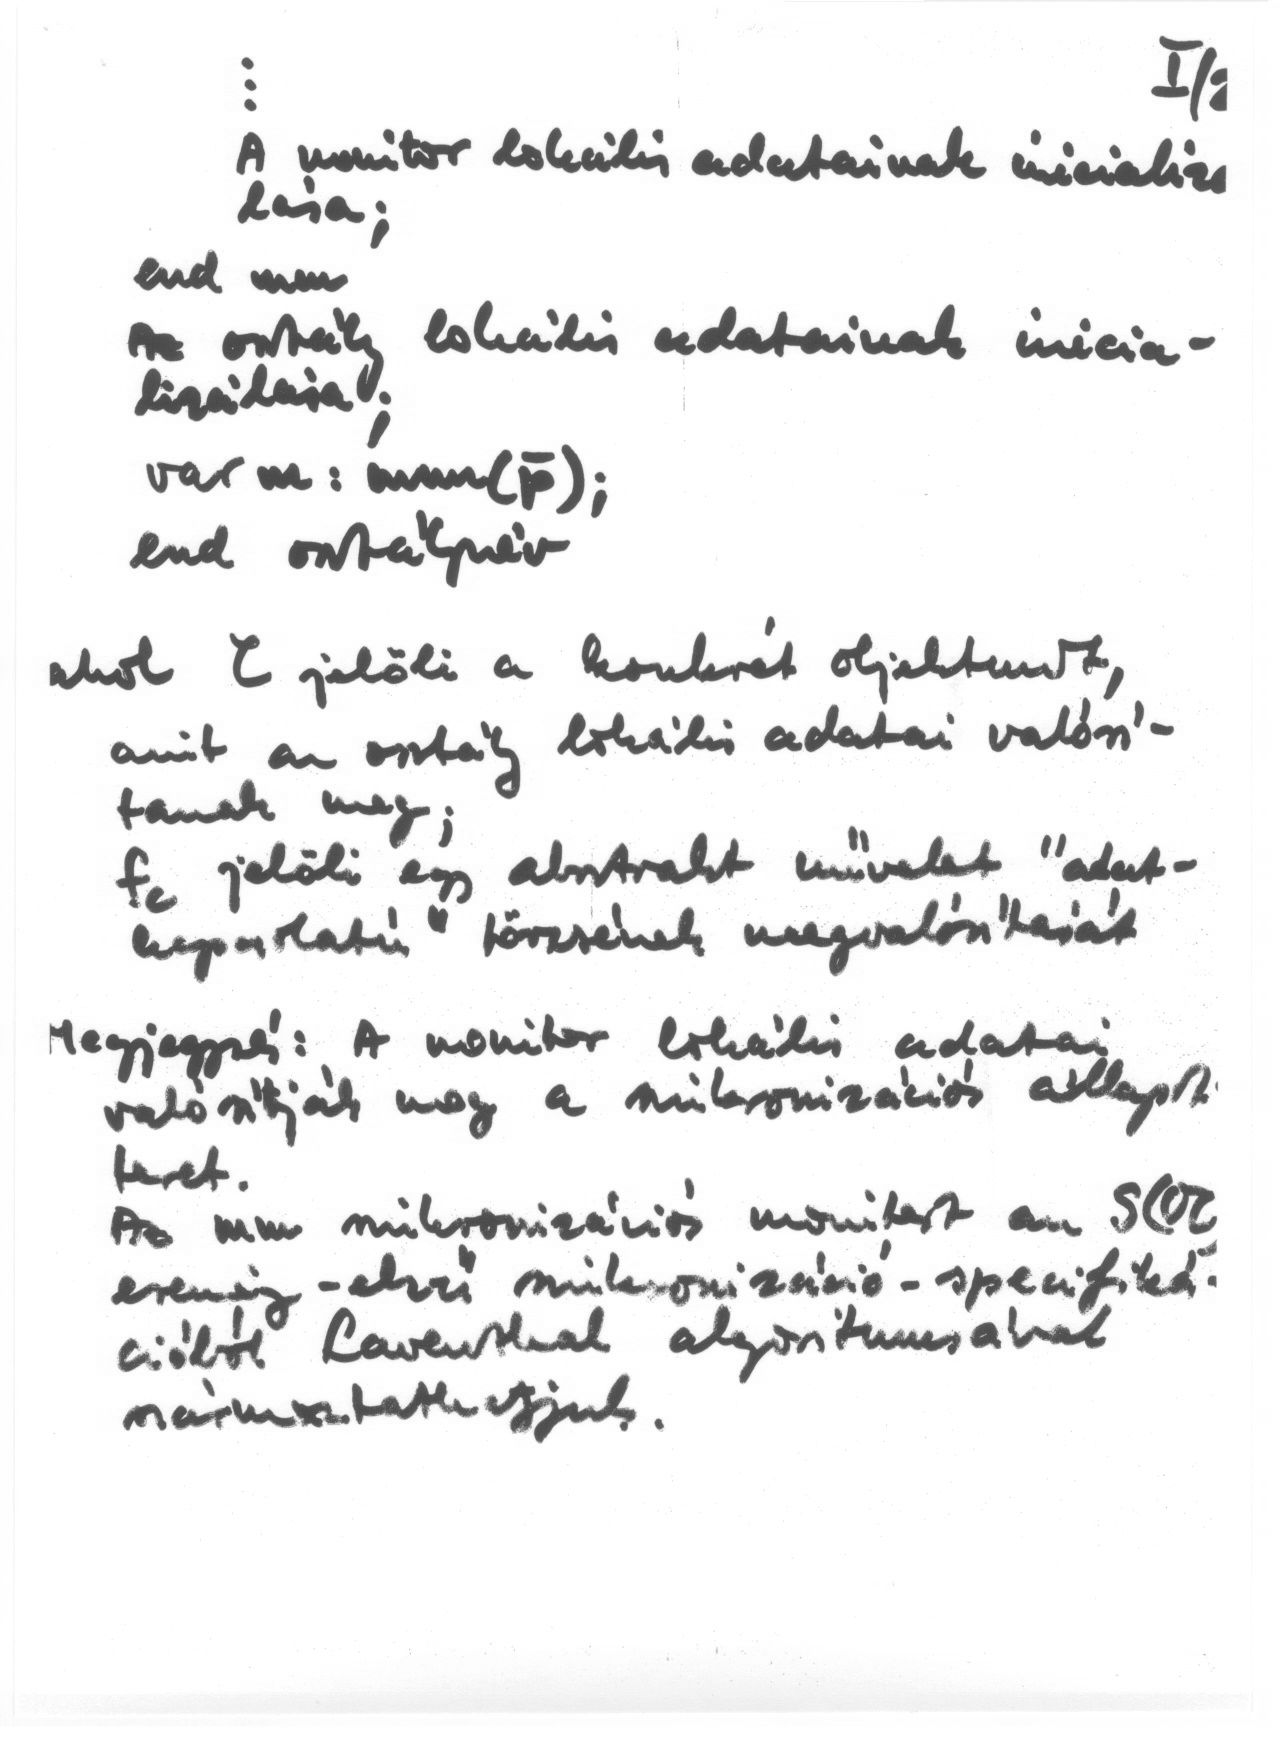 I/2
⋮
A monitor lokális adatainak inicializá
lása;
end mm
Az osztály lokális adatainak inicia-
lizálása;
var m: mm(p̄);
end osztálynév
ahol τ jelöli a konkrét objektumot,
amit az osztály lokális adatai valósí-
tanak meg;
fc jelöli egy absztrakt művelet "adat-
kapcsolatú" törzsének megvalósítását
Megjegyzés: A monitor lokális adatai
valósítják meg a szinkronizációs állapot
teret.
Az mm szinkronizációs monitort an
esemény-elvű szinkronizáció-specifiká-
cióból Laventhal algoritmusával
származtathatjuk.